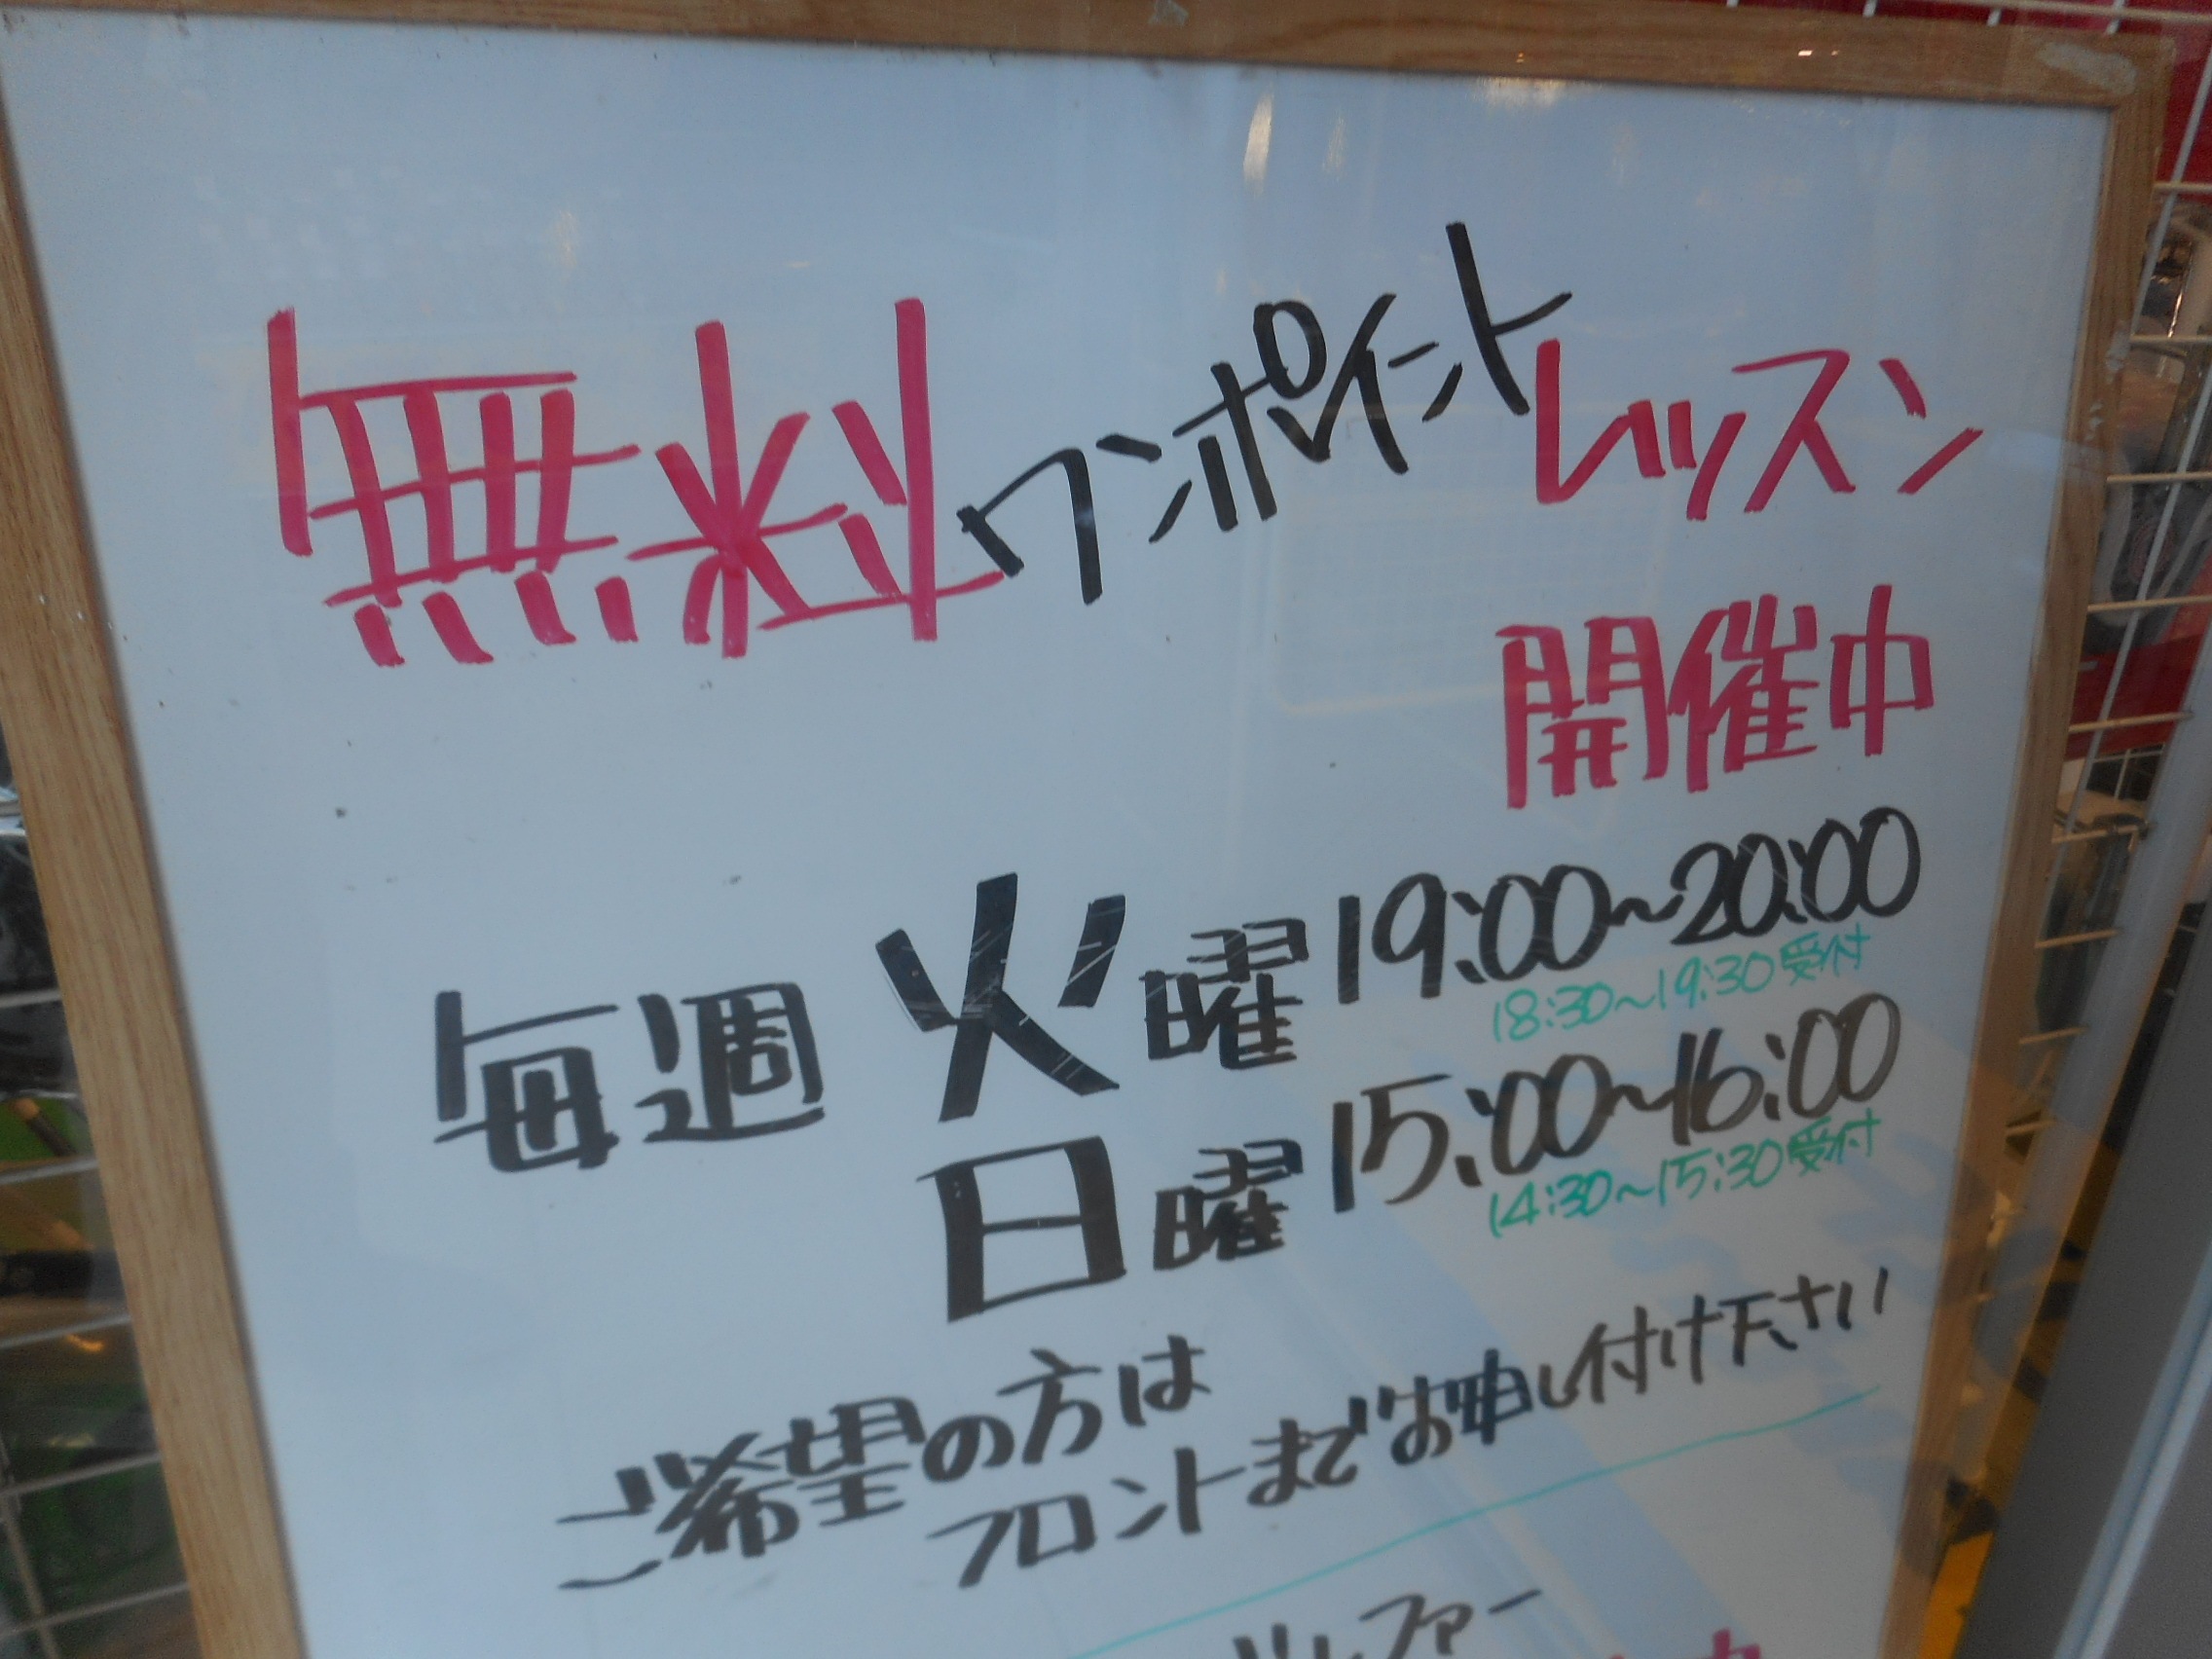 無料ワンポイントレッスン
開催中
毎週 火曜 19:00～20:00
18:30～19:30受付
日曜 15:00～16:00
14:30～15:30受付
ご希望の方は
フロントまでお申し付け下さい